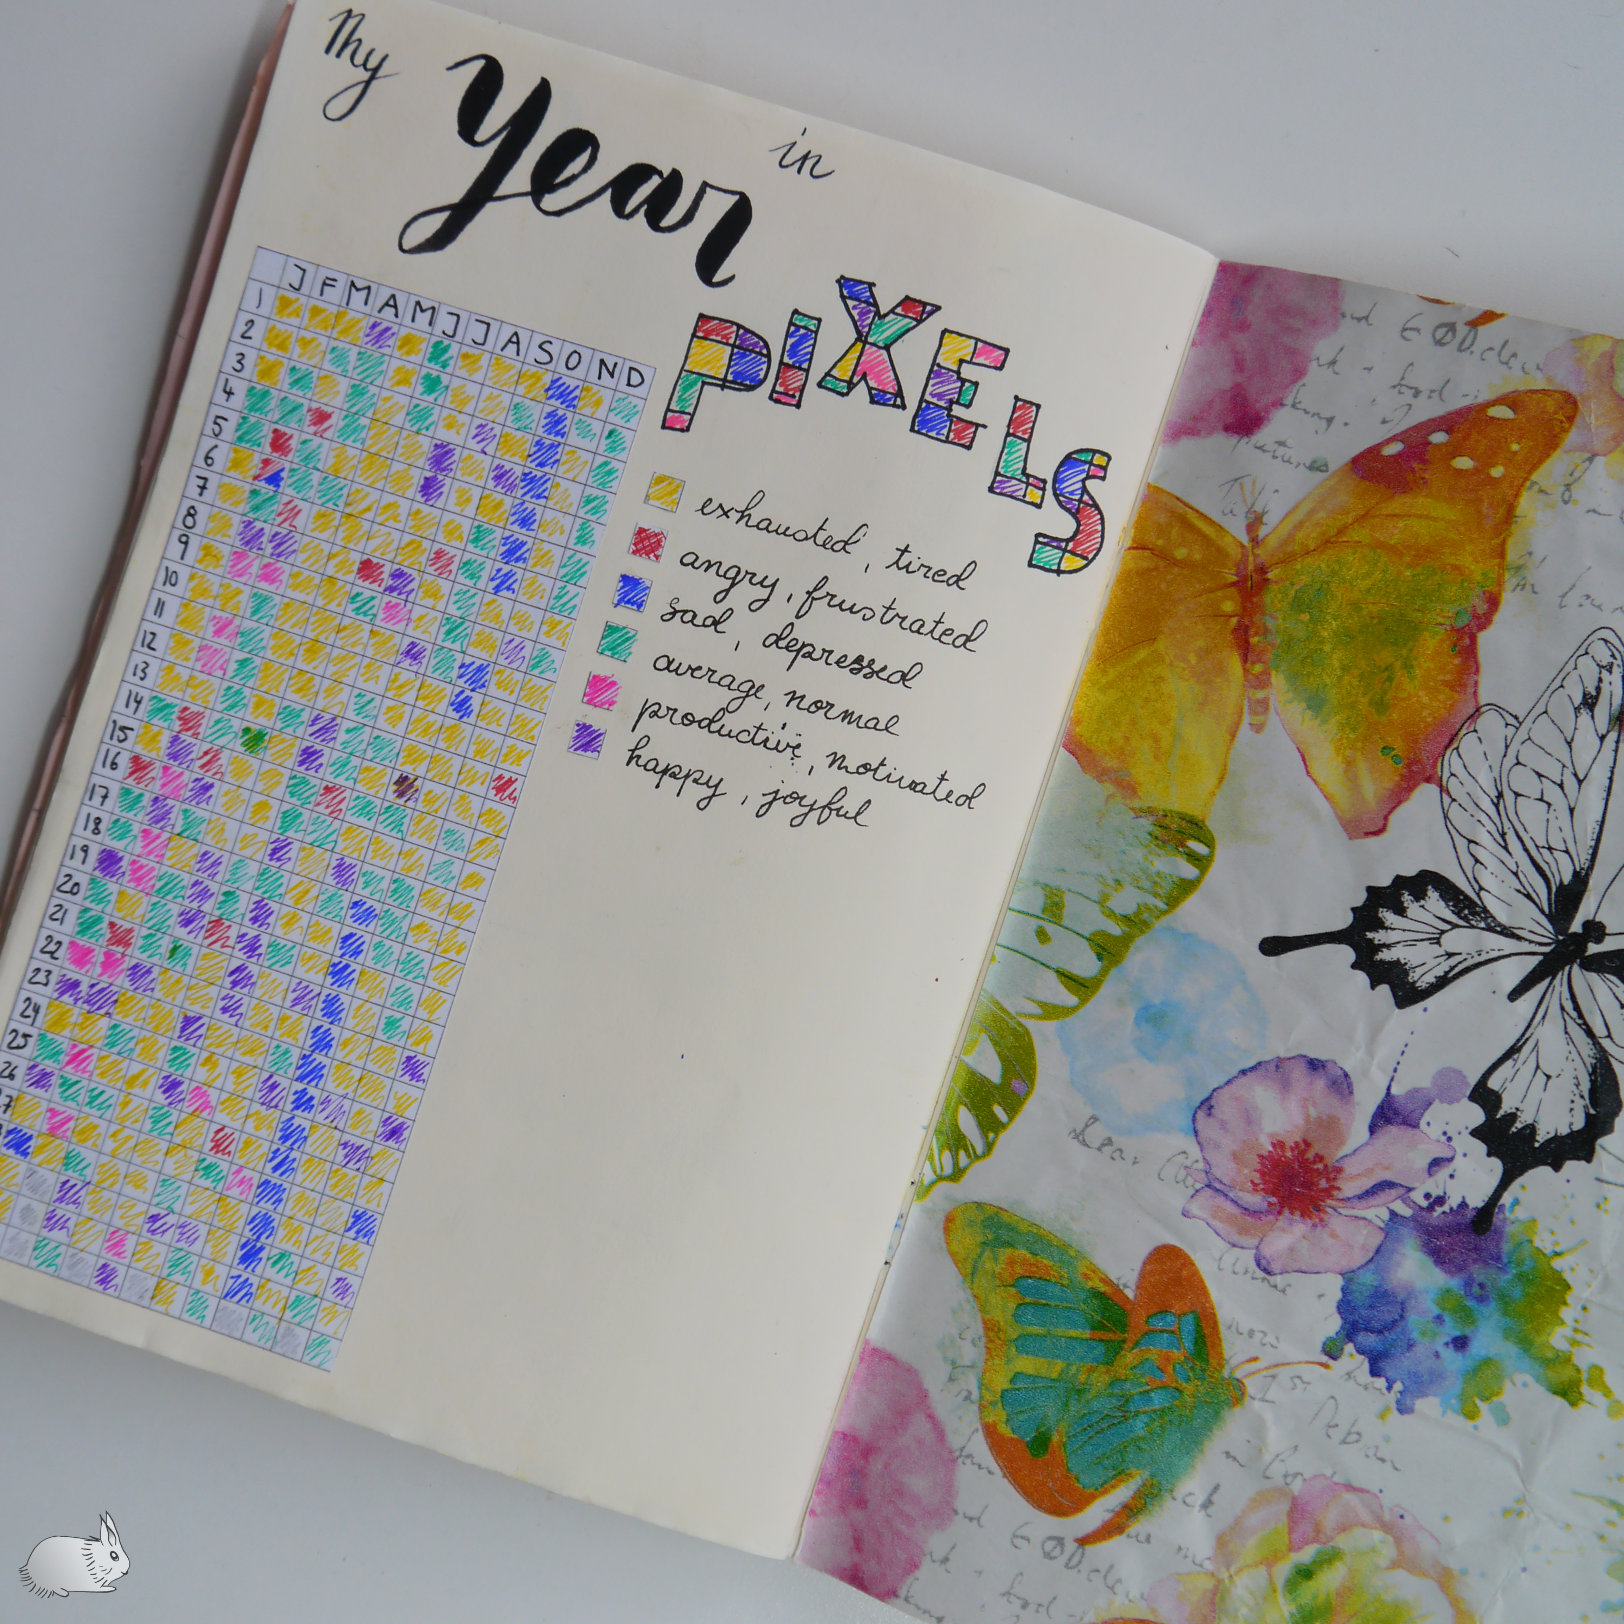 My Year in
PIXELS
J F M A M J J A S O N D
1
2
3
4
5
6
7
8
9
10
11
12
13
14
15
16
17
18
19
20
21
22
23
24
25
26
exhausted, tired
angry, frustrated
sad, depressed
average, normal
productive, motivated
happy, joyful